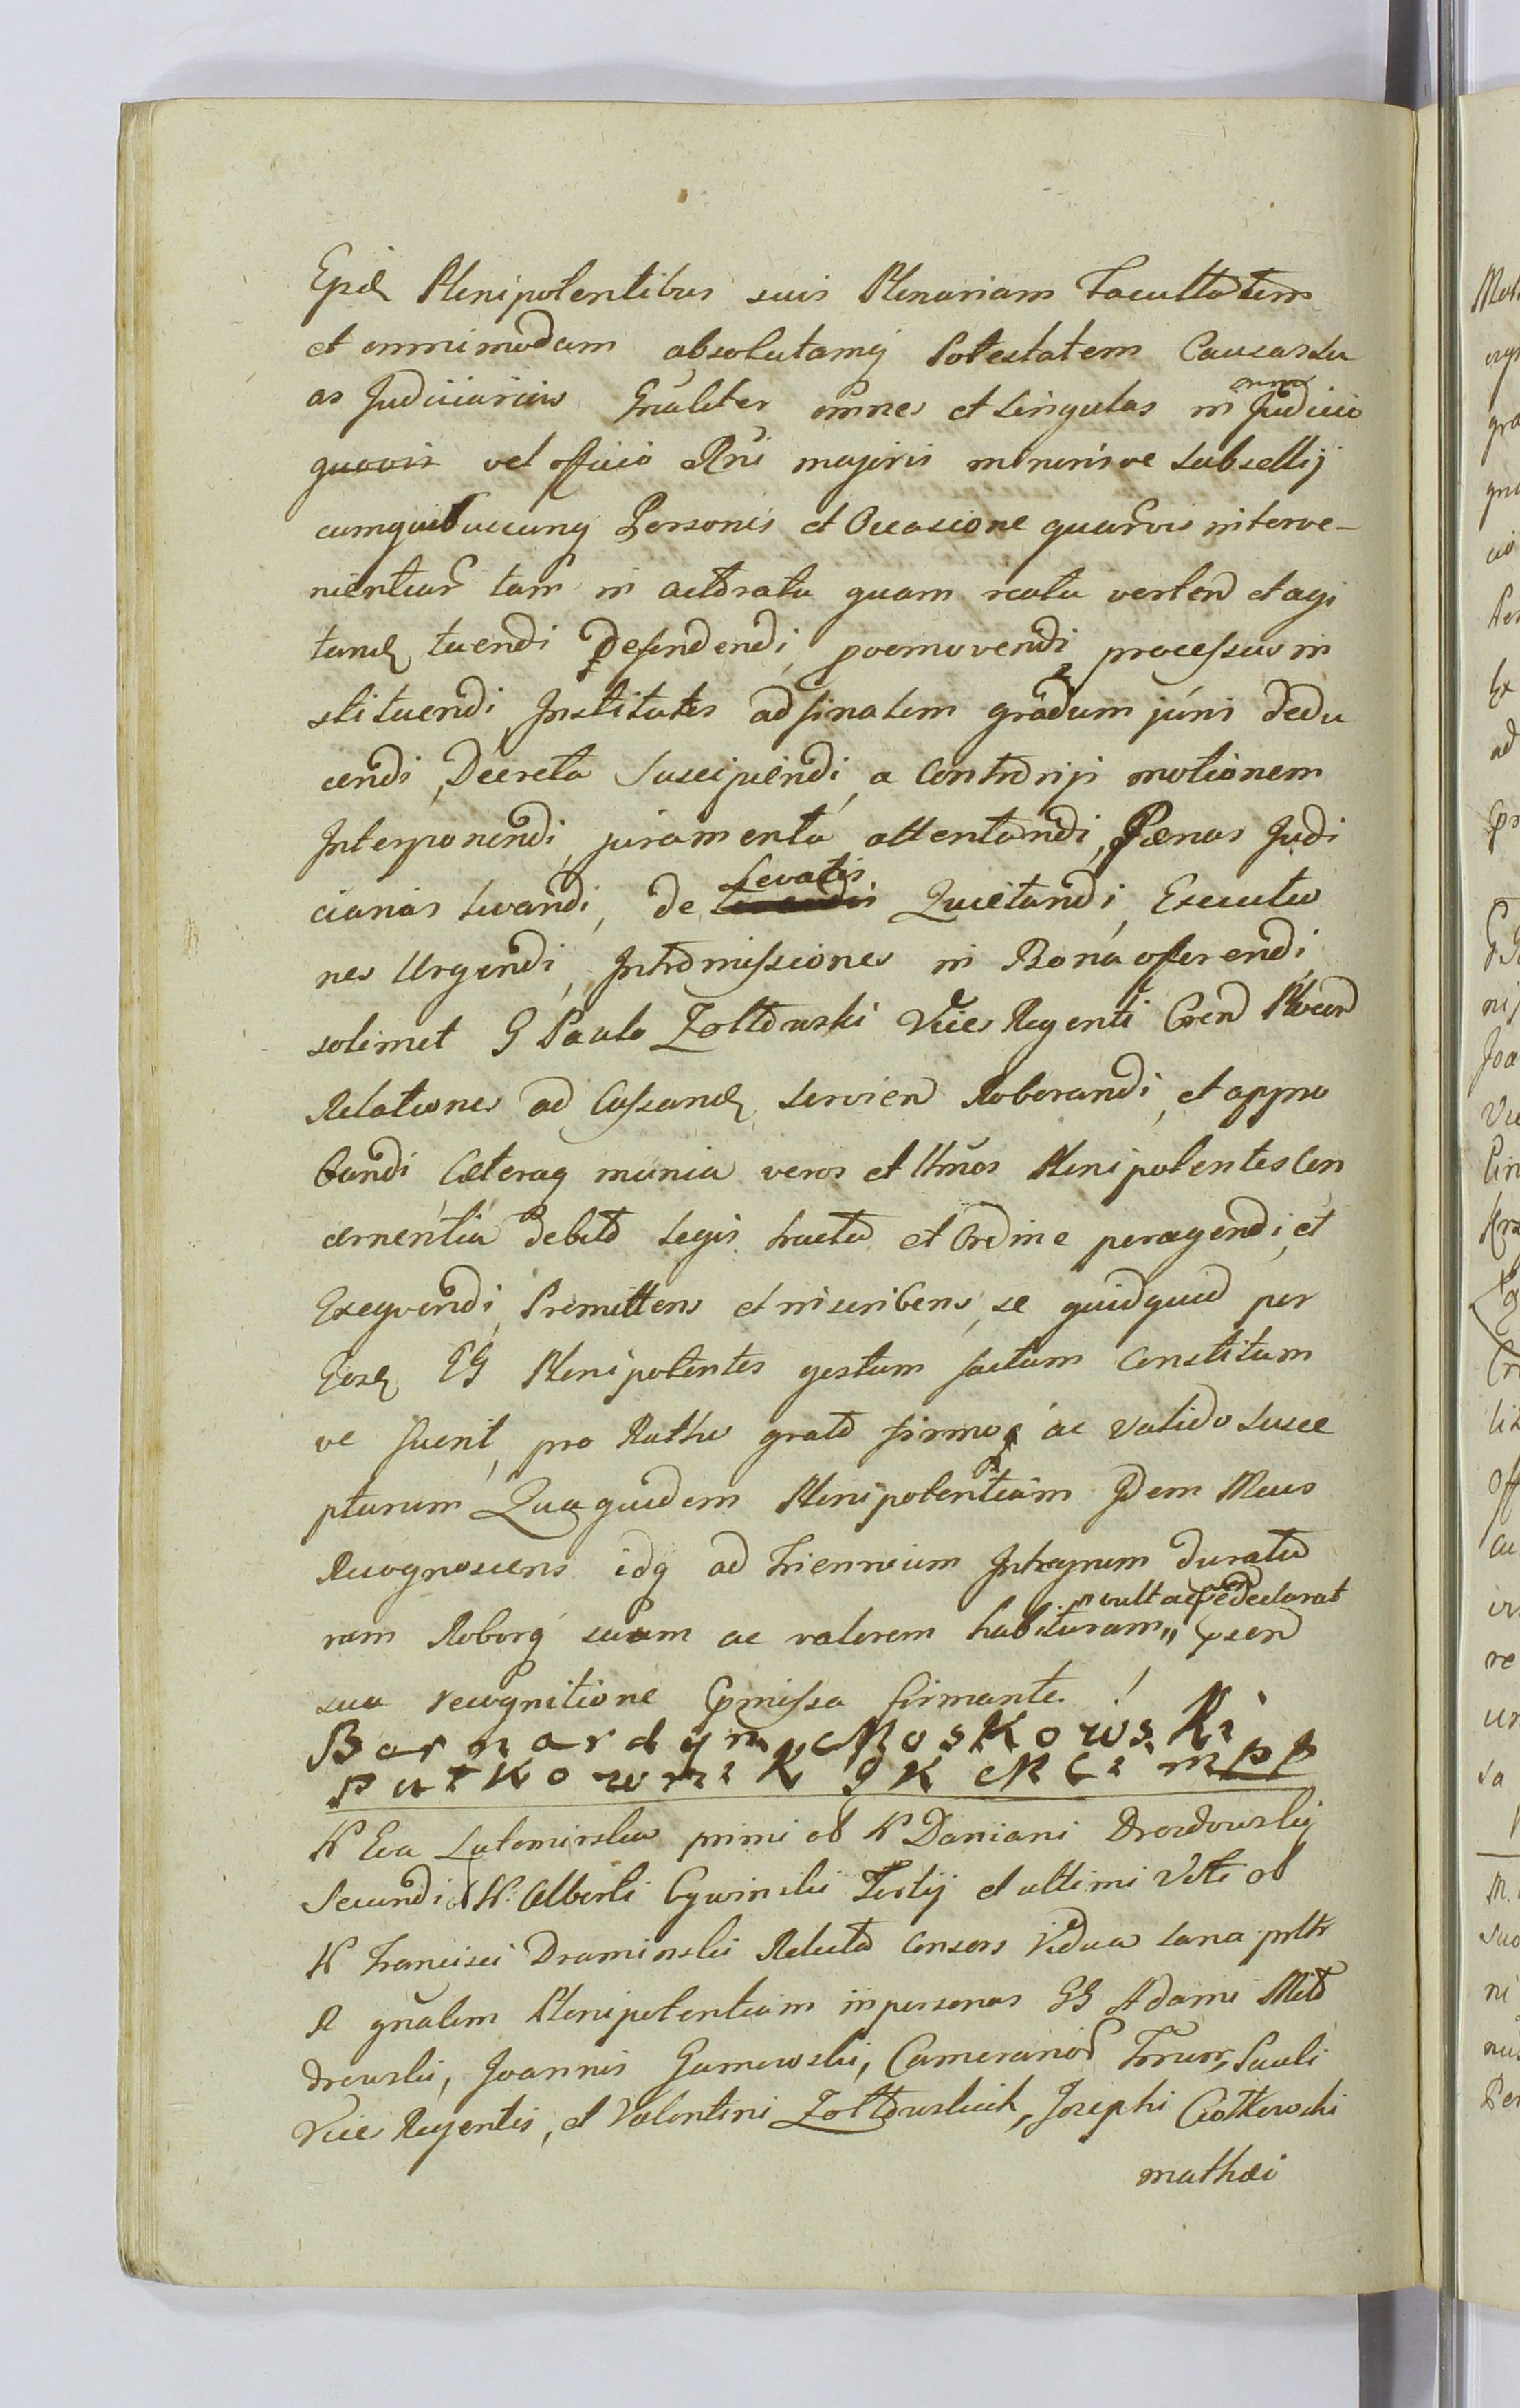 Ejsd Plenipotentibus suis Plenariam Facultatem
et omnimodam absolutamq Potestatem Causas su
as Judiciarias Gnaliter omnes et singulas in omni Judicio
quovis vel officio Rni majoris minorisve Subsellij
cumquibuscunq Personis et Occasione quarvis interve-
nientiar tam in actoratu quam reatu verten et agi
tand tuendi Defendendi, promovendi, processus in
stituendi, Institutos ad finalem gradum juris dedu
cendi, Decreta Suscipiendi, a Contrarijs motionem
Interponendi, juramenta attentandi, Pænas Judi
ciarias Luandi, de Levatis Quietandi, Executio
nes Urgendi, Intromissiones in Bona offerendi,
solimet G Paulo Zołtowski Vices Regenti Cren Plocen
Relationes ad Cassand, servien Roborandi, et appro
bandi Cæteraq munia veros et ltmos Plenipotentes Con
cernentia Debito Legis tractu et Ordine peragendi, et
Exequendi, Promittens et inscribens, se quidquid per
Eosd GG Plenipotentes gestum factum Constitum
ve fuerit, pro Ratho grato firmoq ac valido susce
pturum Quaquidem Plenipotentiam Idem Mcus
Recognoscens idq ad Triennium Integrum duratu
ram Roborq suum ac valorem habituram,, vult ac declarat psen
sua recognitione Pmissa firmante.!
Barnardyn Moskowski
Putkownik JK Mci mpp
N Eva Lutomirska primi ob N Damiani Drozdowskij
Secundi ol N. Alberti Cywinski Tertij et ultimi Voti ol
N Francisci Draminski Relicta Consors Vidua sana pntr
R gnalem Plenipotentiam in personas GG Adami Mło
drowski, Joannis Gumowski, Camerarior Trrum, Pauli
Vice Regentis, et Valentini Zołtowskich, Josephi Ciotkowski
mathæi